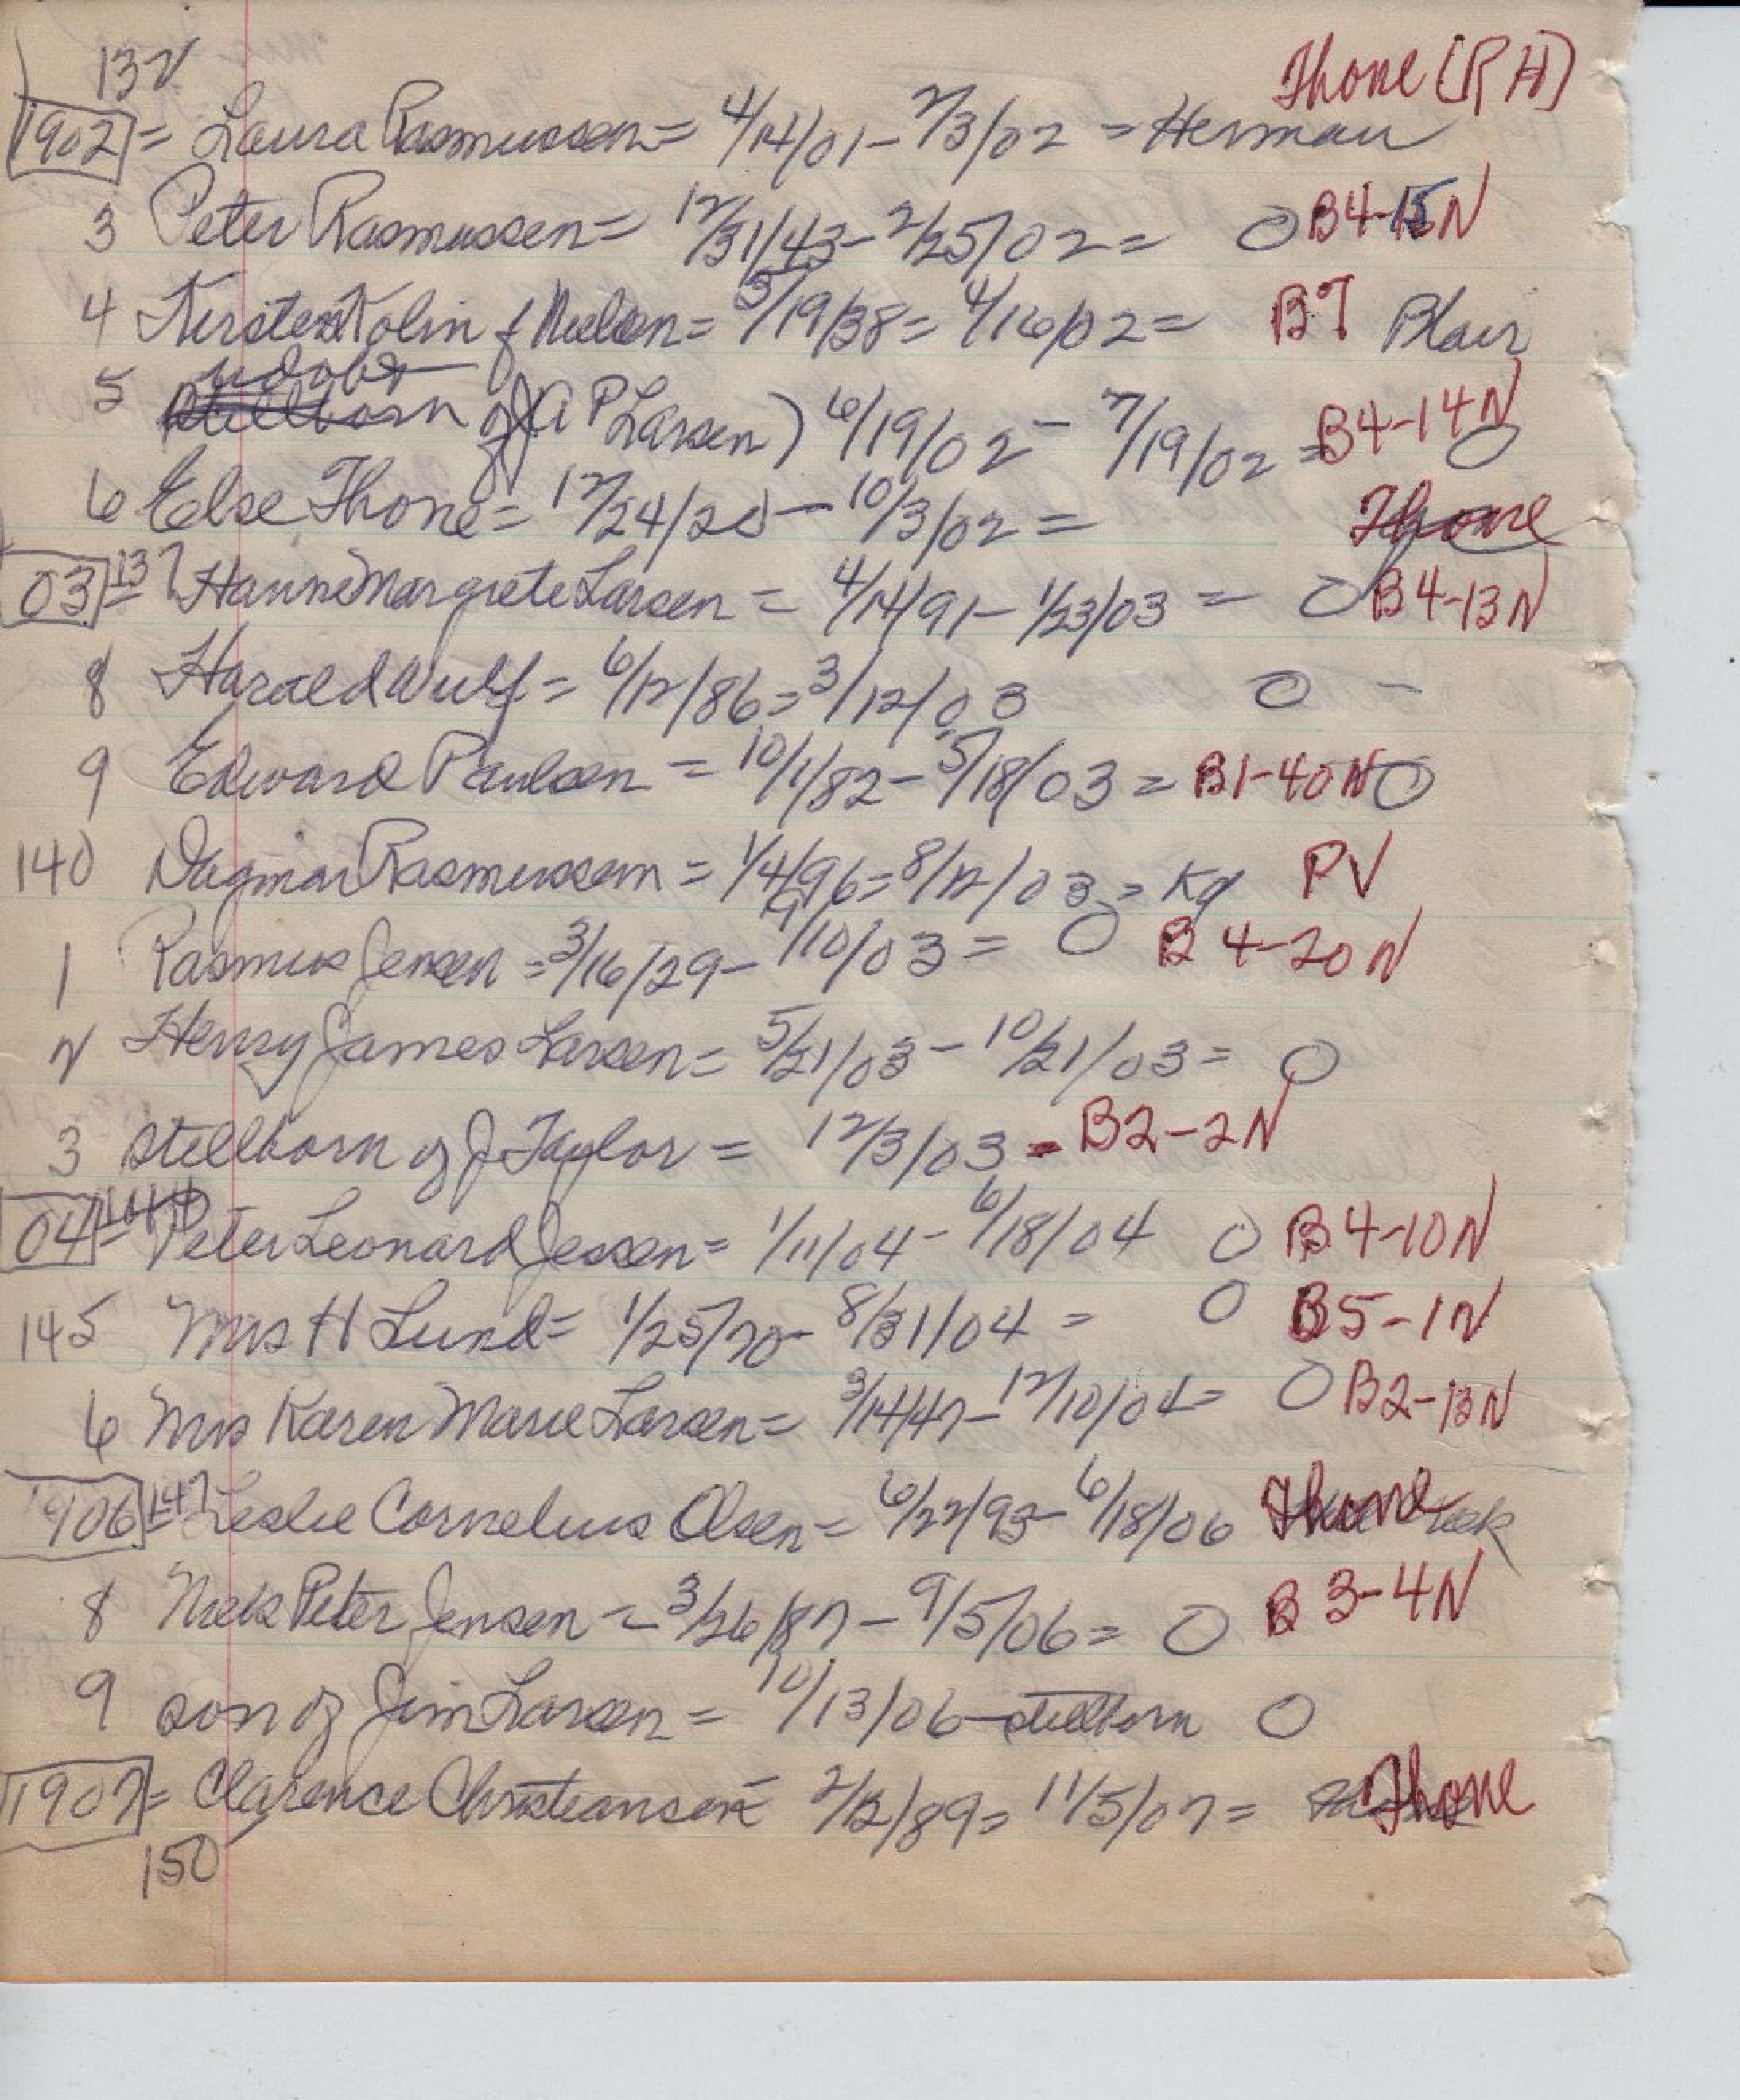 132 Thone (RH)
1902 = Laura Rasmussen = 4/14/01 - 7/3/02 = Herman
3 Peter Rasmussen = 12/31/43 - 2/25/02 = O B4-15N
4 Kirsten Kolin f Nielsen = 3/19/38 = 4/16/02 = B7 Blair
5 stillborn of (A P Larsen) 6/19/02 - 7/19/02 = B4-14N O
6 Else Thone = 12/24/20 - 10/3/02 = Thone
03 = 137 Hanne Margrete Larsen = 4/14/91 - 1/23/03 = O B4-13N
8 Harald Wulf = 6/12/86 = 3/12/03 O -
9 Edward Paulsen = 10/1/82 - 5/18/03 = B1-40N O
140 Dagmar Rasmussen = 1/4/96 = 8/12/03 = Kd PV
1 Rasmus Jensen = 3/16/29 - 9/10/03 = O B4-20N
2 Henry James Larsen = 5/21/03 - 10/21/03 = O
3 stillborn of J Taylor = 12/3/03 = B2-2N
04 = 144 Peter Leonard Jessen = 1/11/04 - 6/18/04 O B4-10N
145 Mrs H Lund = 1/25/70 - 8/31/04 = O B5-1N
6 Mrs Karen Marie Larsen = 3/14/47 - 12/10/04 = O B2-13N
1906 = 147 Leslie Cornelius Olsen = 6/22/93 - 6/18/06 Thone
8 Niels Peter Jensen = 3/26/87 - 9/5/06 = O B3-4N
9 son of Jim Larsen = 10/13/06 - stillborn O
1907 = Clarence Christiansen = 2/12/89 = 11/5/07 = Thone
150